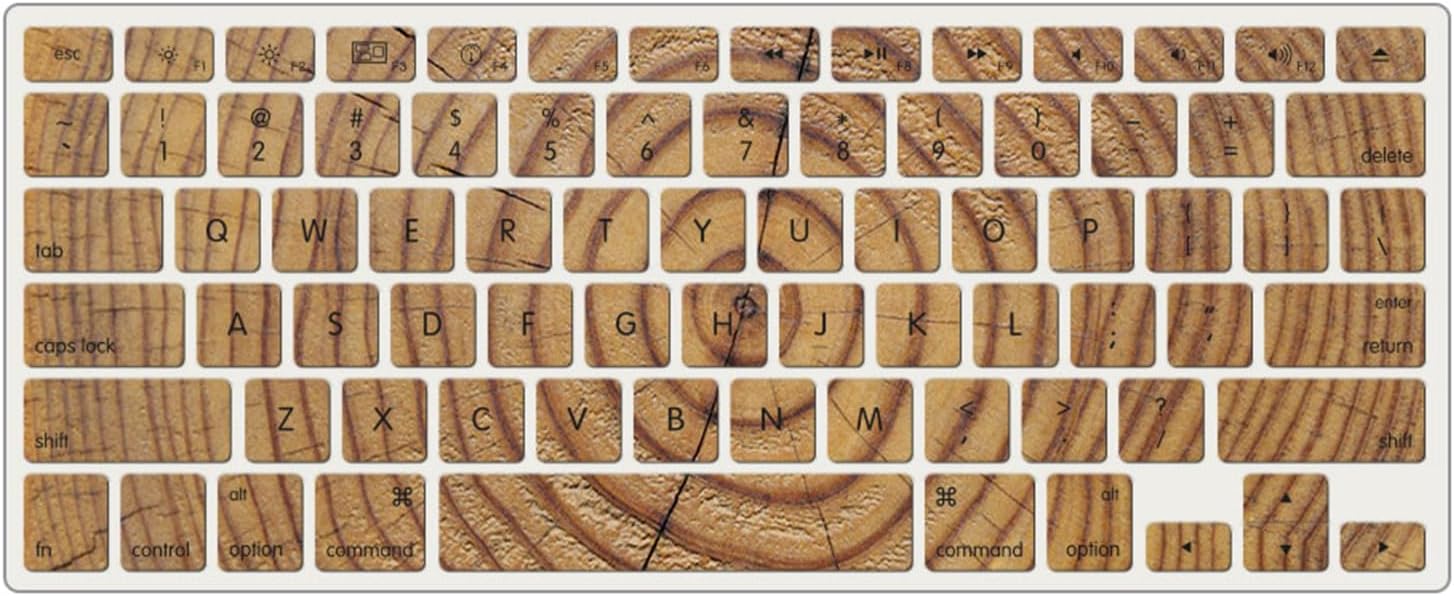 esc F1 F2 F3 F4 F5 F6 F8 F9 F10 F11 F12
~ ! @ # $ % ^ & * ( ) _ +
` 1 2 3 4 5 6 7 8 9 0 - = delete
tab Q W E R T Y U I O P { [ } ] \
caps lock A S D F G H J K L : ; " ' enter return
shift Z X C V B N M < , > . ? / shift
fn control alt option ⌘ command ⌘ command alt option